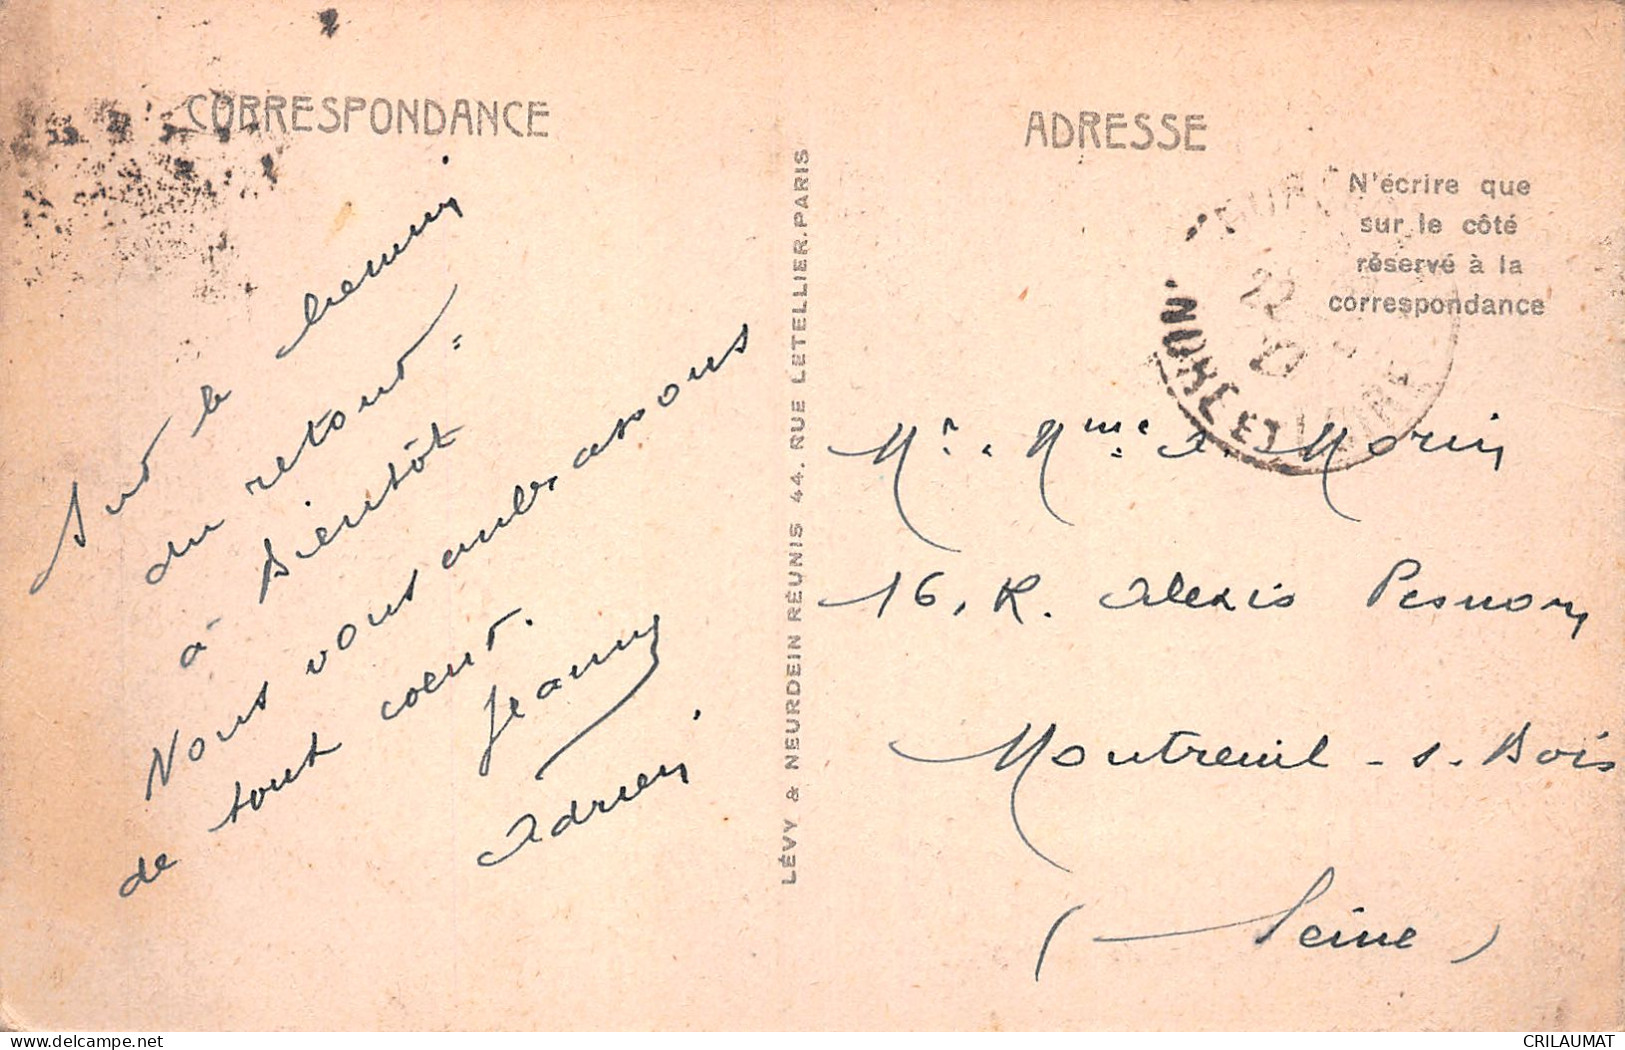 CORRESPONDANCE
Sur le chemin
du retour -
à bientôt
Nous vous embrassons
de tout coeur.
Jeanne
Adrien
LÉVY & NEURDEIN RÉUNIS 44, RUE LETELLIER, PARIS
ADRESSE
N'écrire que
sur le côté
réservé à la
correspondance
INDRE ET LOIRE
22
27
Mr. Mme A. Morin
16, R. Alexis Pesnon
Montreuil-s.-Bois
(Seine)
delcampe.net
CRILAUMAT